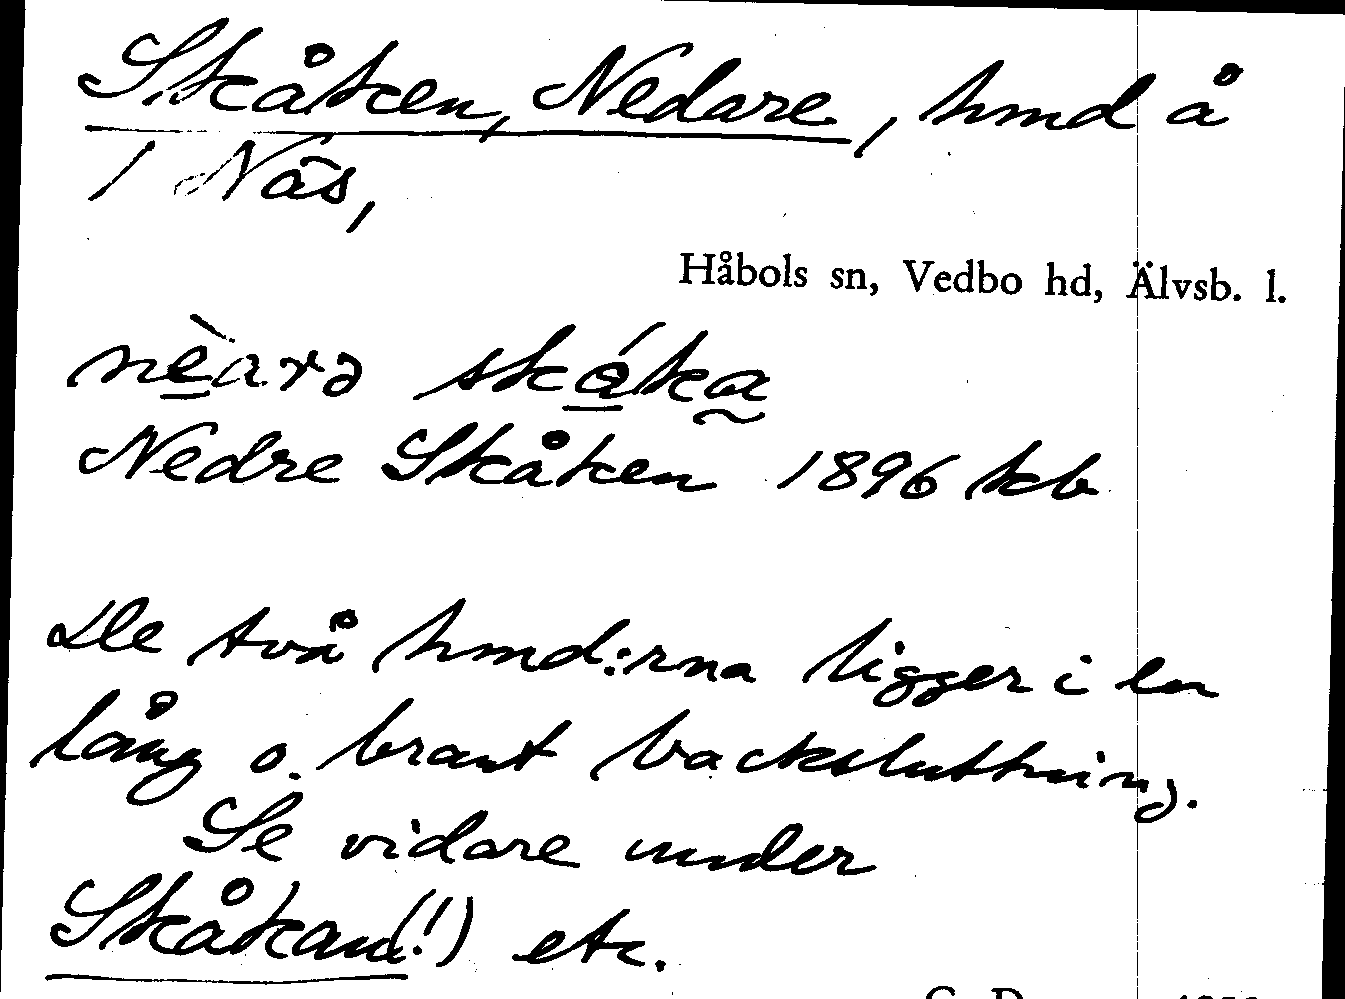 Skåken, Nedare, hmd å
1 Näs,
Håbols sn, Vedbo hd, Älvsb. l.
nèarə skáka
Nedre Skåken 1896 kb
De två hmd:rna ligger i en
lång o. brant backsluttning.
Se vidare under
Skåkan(!) etc.